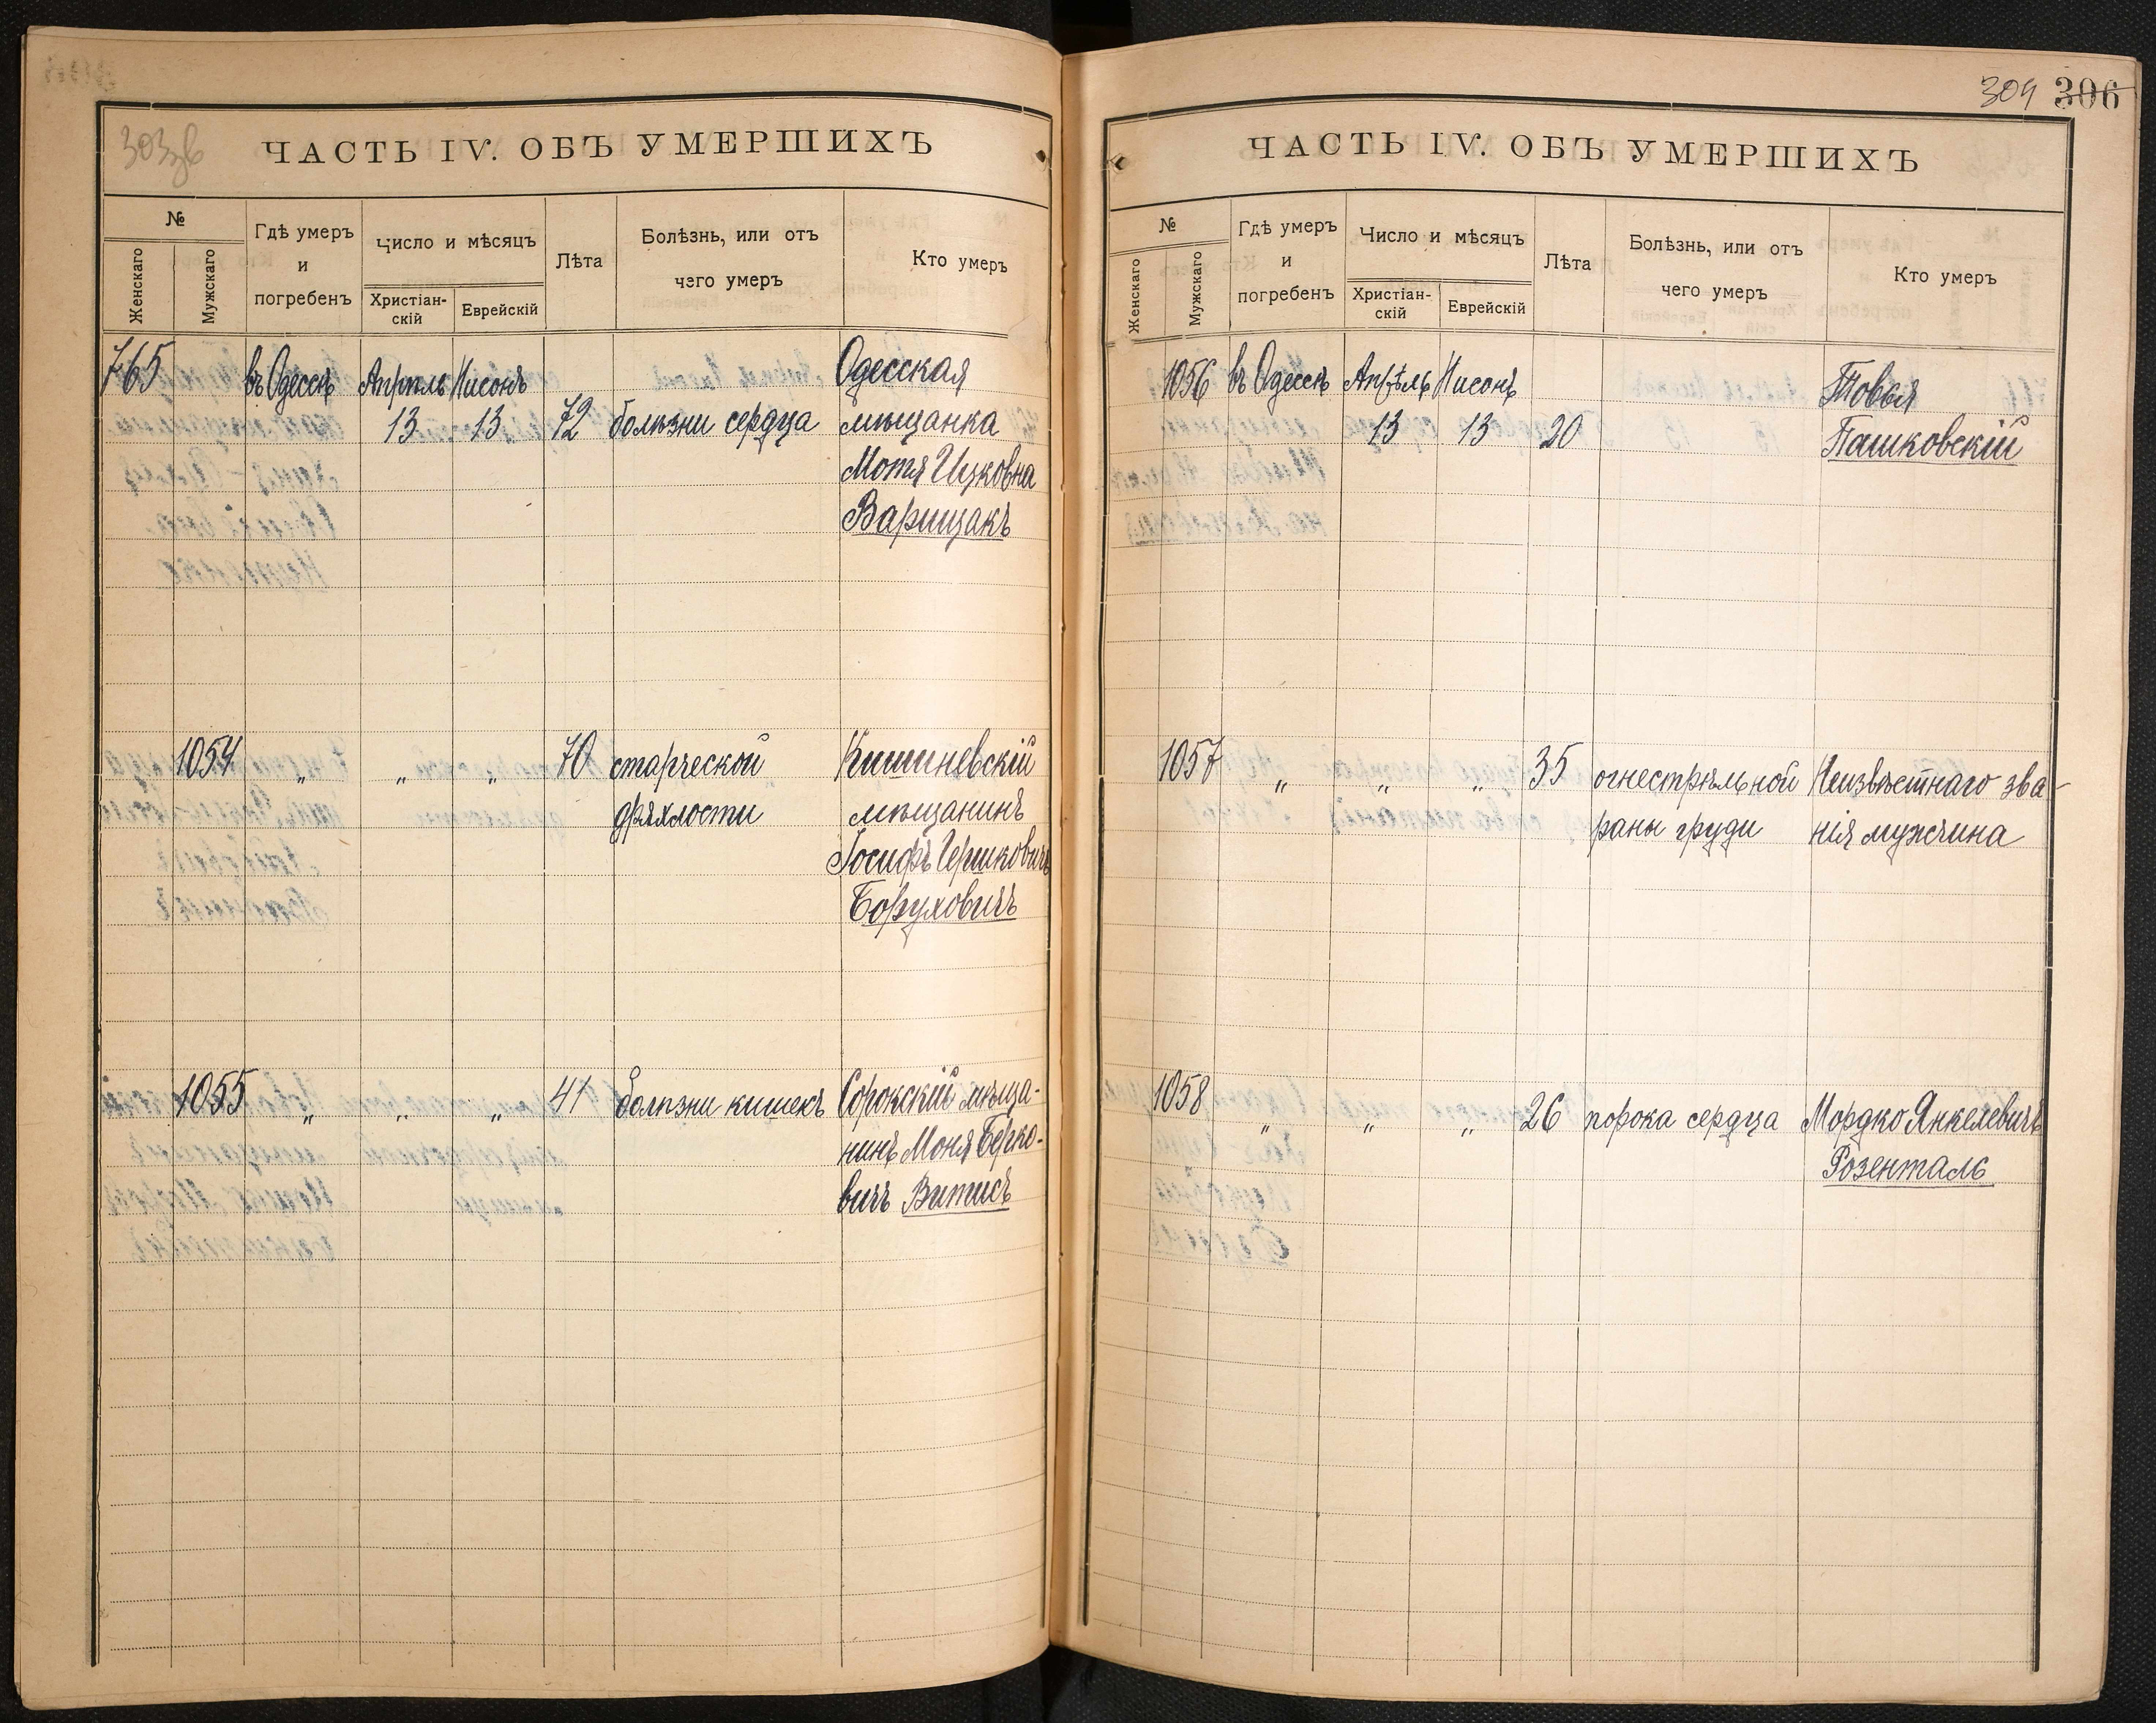 303зв
ЧАСТЬ IV. ОБЪ УМЕРШИХЪ
№
Женскаго
Мужскаго
Гдѣ умеръ
и
погребенъ
Число и мѣсяцъ
Христіан-
скій
Еврейскій
Лѣта
Болѣзнь, или отъ
чэго умеръ
Кто умеръ
765 въ Одессѣ Апрѣль Нисонъ Одесская
13 13 72 болѣзни сердца мѣщанка
Мотя Ицковна
Варищакъ
1054 " " " 70 старческой Кишиневскій
дряхлости мѣщанинъ
Іосифъ Гершковичъ
Боруховичъ
1055 " " " 41 болѣзни кишекъ Сорокскій мѣща-
нинъ Моня Берко-
вичъ Витисъ
304 306
ЧАСТЬ IV. ОБЪ УМЕРШИХЪ
№
Женскаго
Мужскаго
Гдѣ умеръ
и
погребенъ
Число и мѣсяцъ
Христіан-
скій
Еврейскій
Лѣта
Болѣзнь, или отъ
чего умеръ
Кто умеръ
1056 въ Одессѣ Апрѣль Нисонъ Товья
13 13 20 Пашковскій
1057 " " " 35 огнестрѣльной Неизвѣстнаго зва-
раны груди нія мужчина
1058 " " " 26 порока сердца Мордко Янкелевичъ
Розенталь